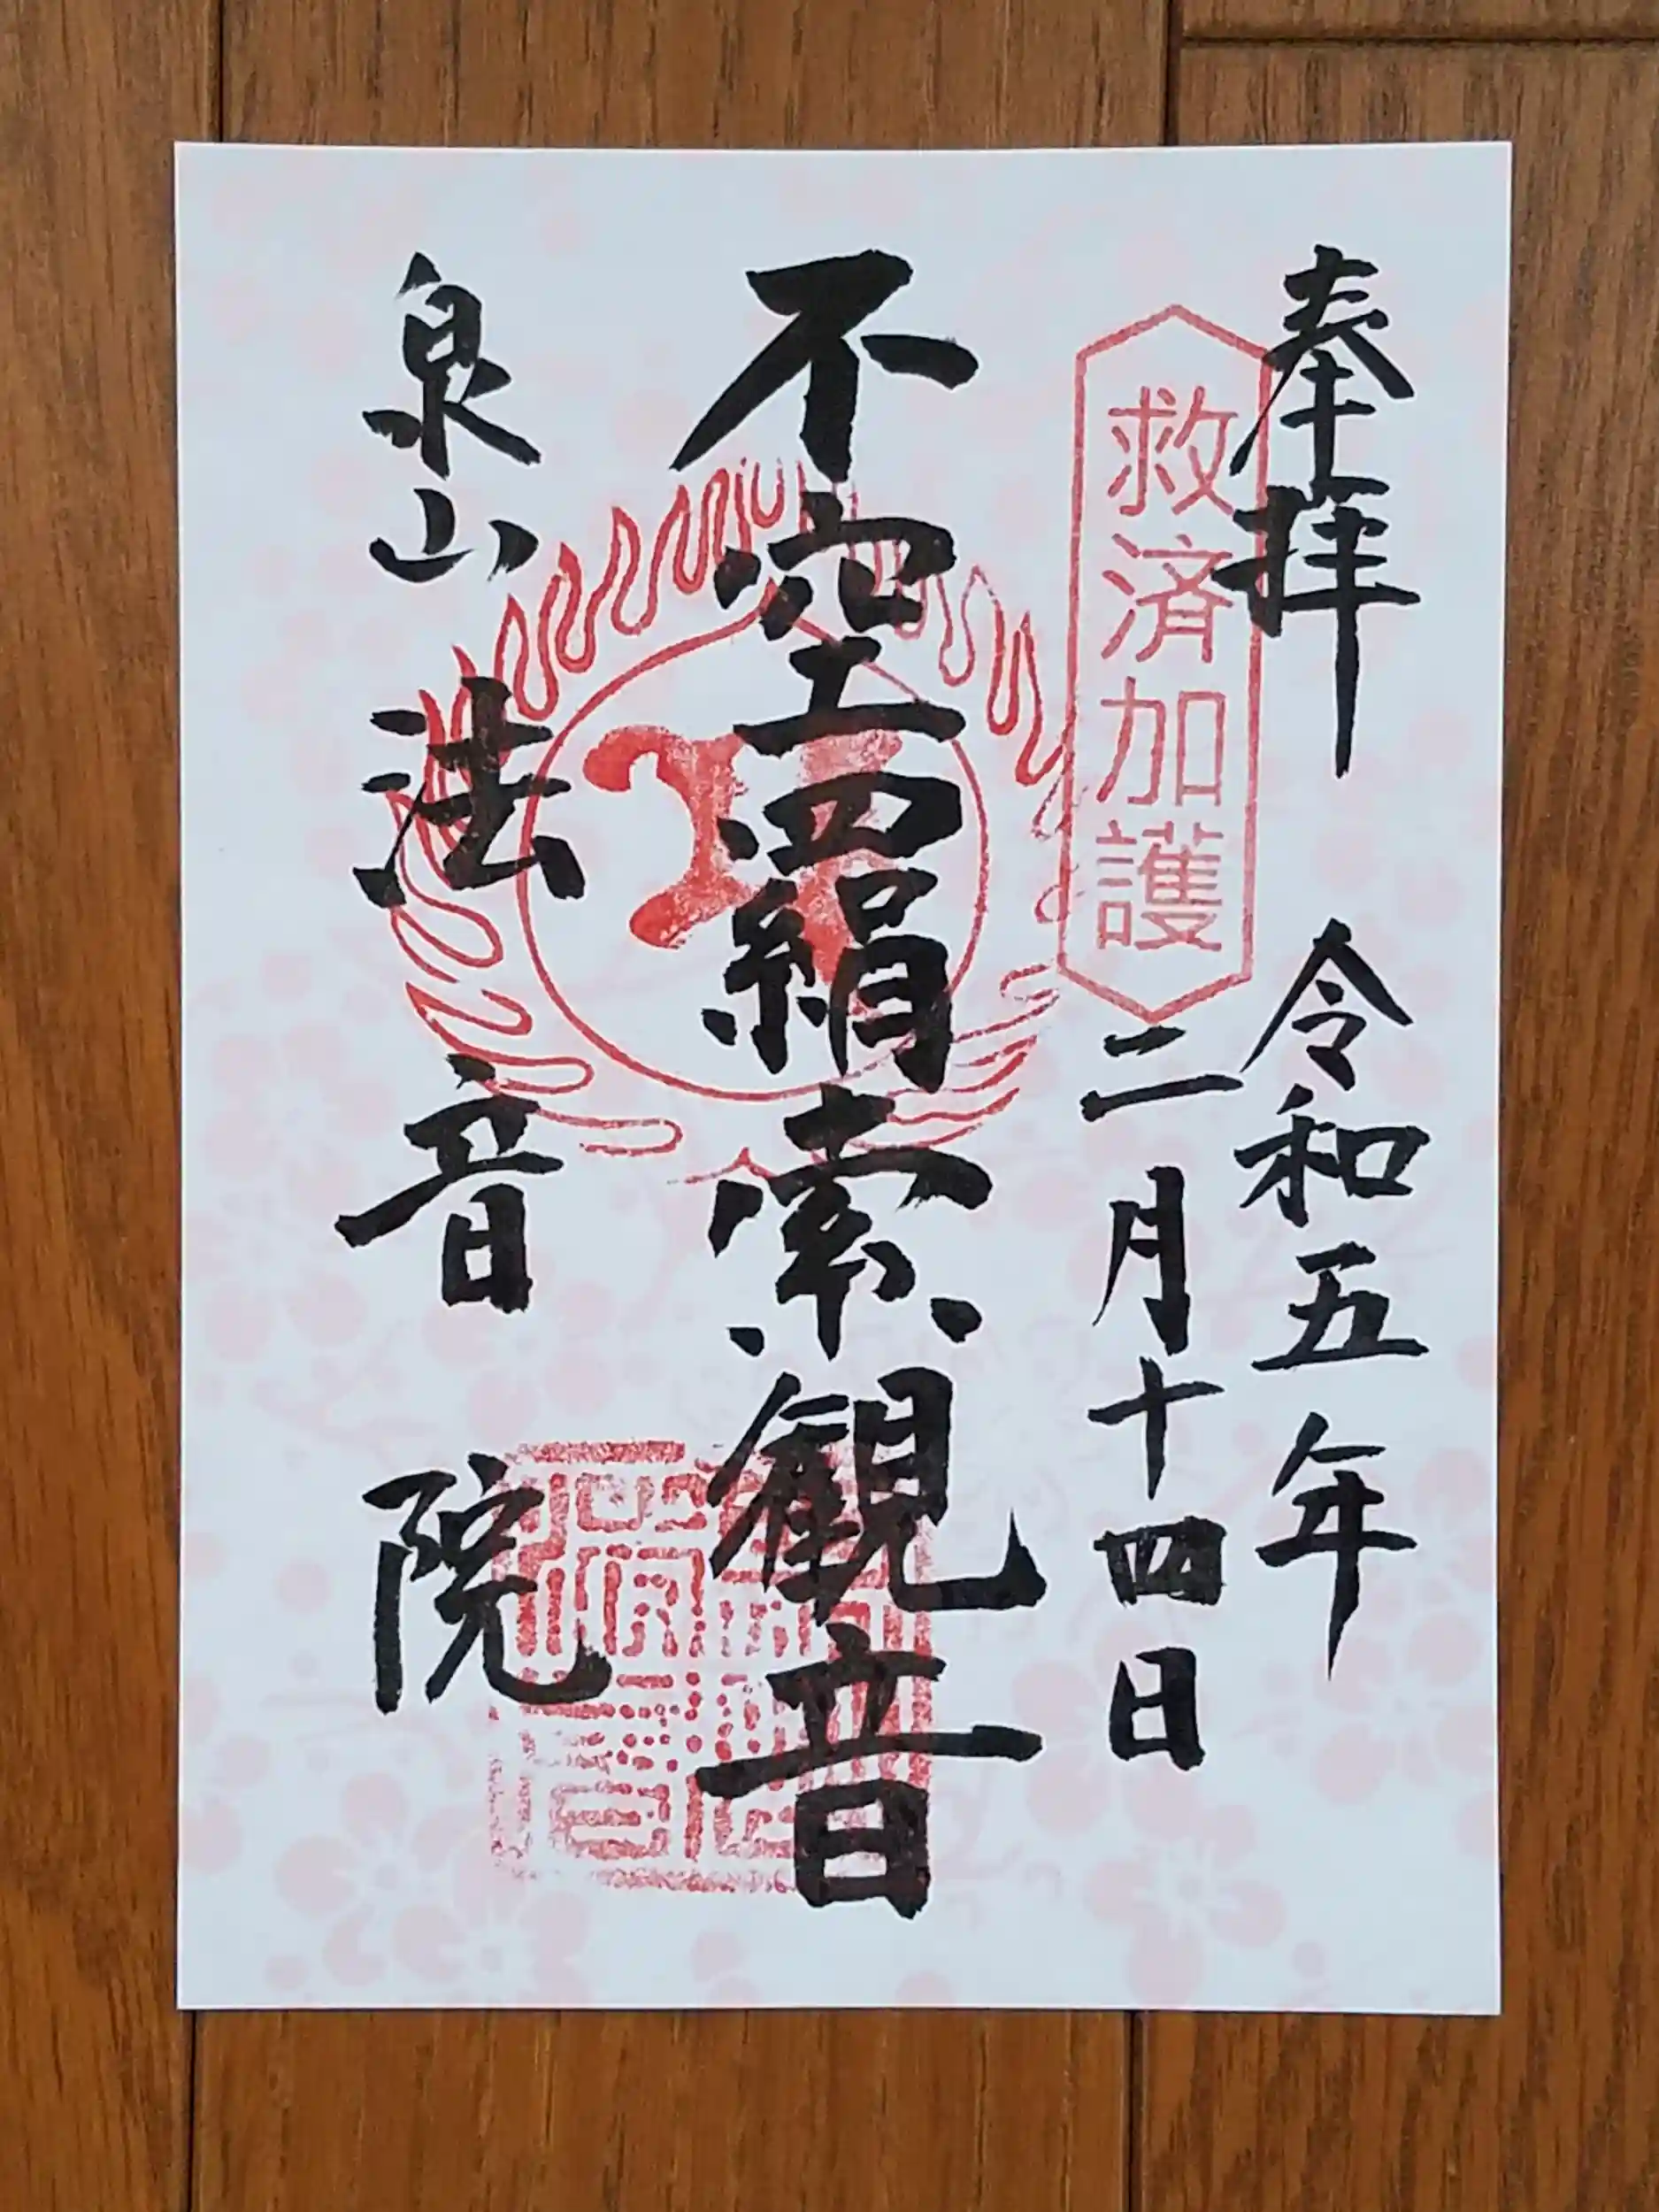 奉拝 令和五年
二月十四日
救済加護
不空羂索観音
泉山 法音院